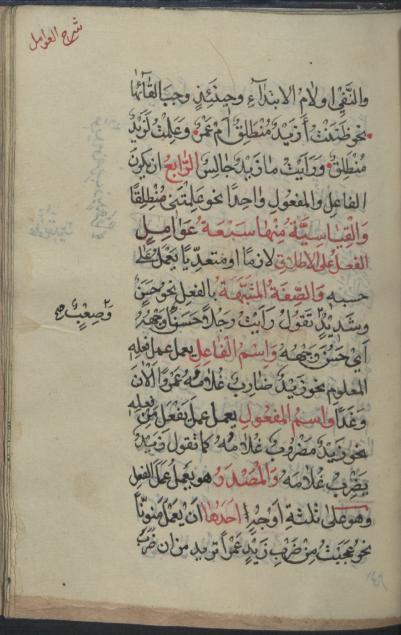 شرح العوامل
والنفي او لام الابتداء وحينئذ وجب القائها
نحو ظننت أزيد منطلق ام عمر وعلمت لزيد
منطلق ورايت ما زيد جالس الرابع ان يكون
الفاعل والمفعول واحدا نحو علمتني منطلقا
والقياسية منها سبعة عوامل
الفعل على الاطلاق لازما او متعديا يعمل على
حسبه والصفة المشبهة بالفعل نحو حسن
وشديد تقول رايت رجلا حسنا وجهه
وصعب
اي حسن وجهه واسم الفاعل يعمل عمل فعله
المعلوم نحو زيد ضارب غلامه عمروا الآن
وغدا واسم المفعول يعمل عمل يفعل من فعله
نحو زيد مضروب غلامه كما تقول زيد
يضرب غلامه والمصدر هو يعمل عمل الفعل
وهو على ثلثة اوجه احدها ان يعمل منونا
نحو عجبت من ضرب زيد عمرا تريد من ان ضرب